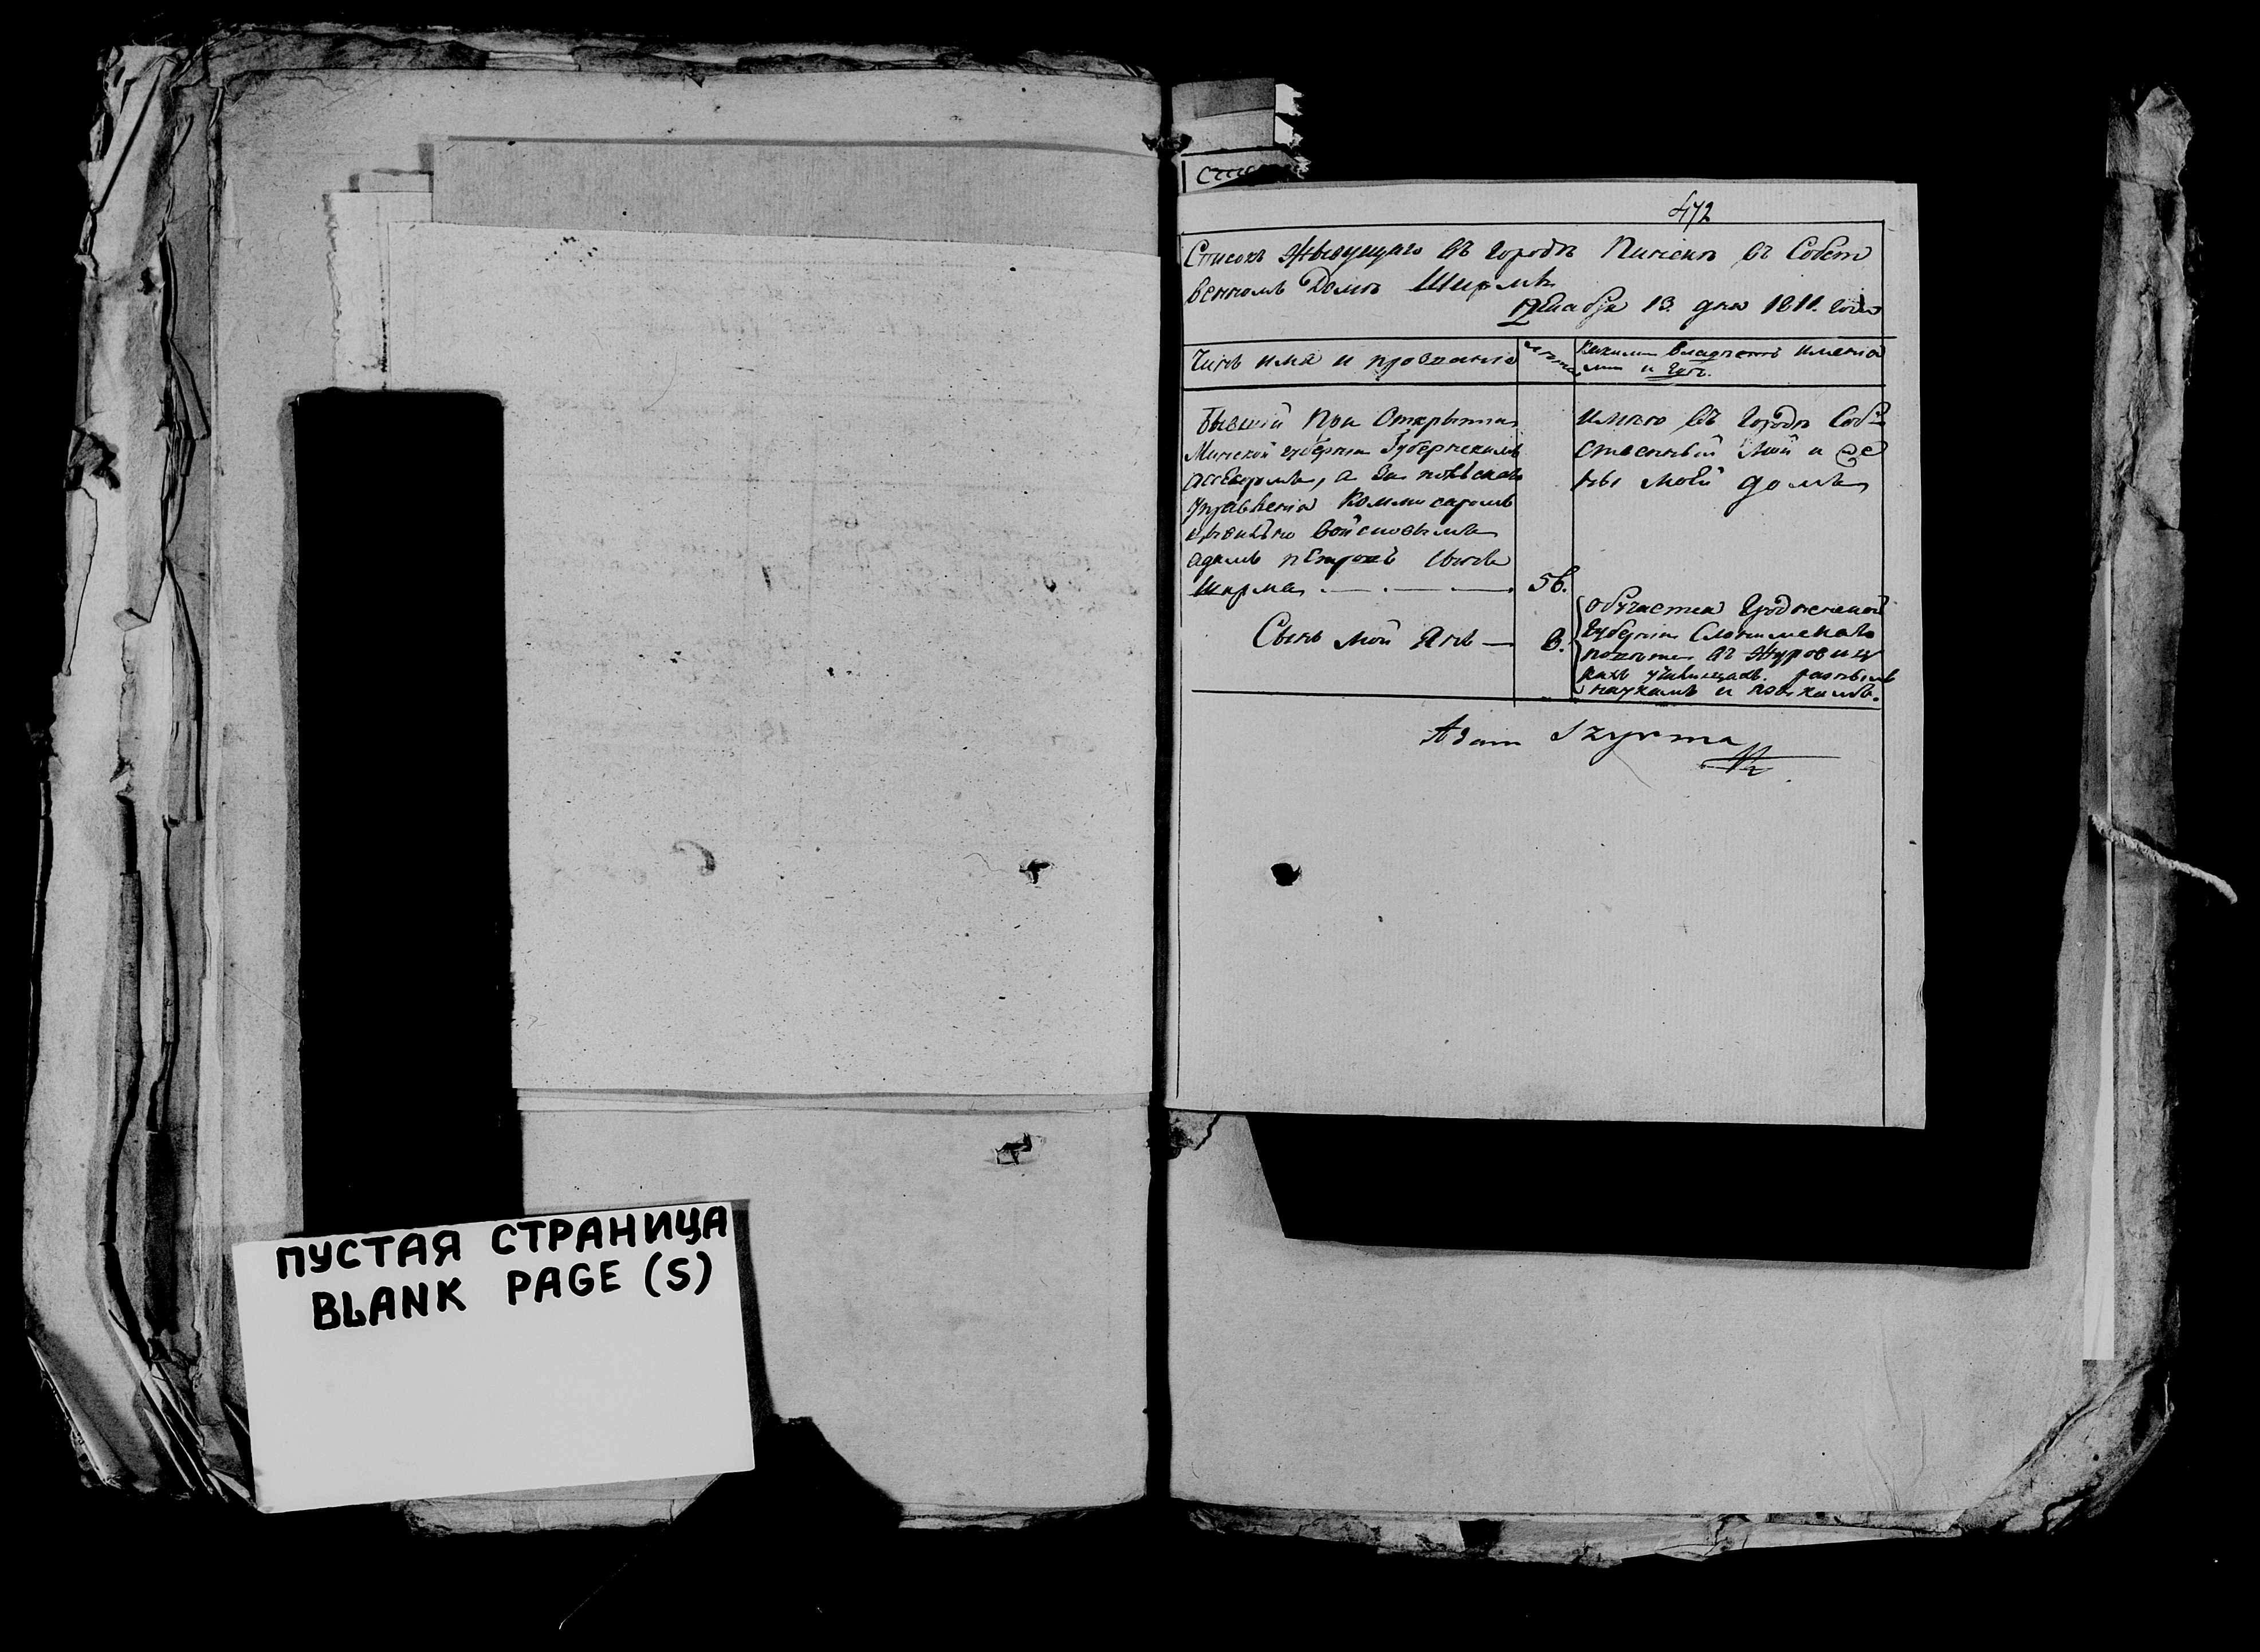 ПУСТАЯ СТРАНИЦА
BLANK PAGE (S)
472
Списокъ Живущаго въ городѣ Пинскѣ въ Собст
венномъ Домѣ Ширмѣ
Декабря 13 дня 1811. года
Чинъ имя и прозваніе
лѣта
какими владѣетъ имѣнія
ми и гдѣ.
Бывшій При Открытіи
Минской губерніи Губернскимъ
ассесоромъ, а за польскаго
Управленія Коммисаромъ
войсковымъ
адамъ пЕтровъ сынъ
Ширма
56.
имѣю въ городѣ Соб
ственный мой и же
ны моей домъ
Сынъ мой Янъ —
8.
обучается Гродненской
губерніи Слонимскаго
повѣта въ Журовиц
кихъ училищахъ разнымъ
наукамъ и языкамъ.
Adam Szyrma